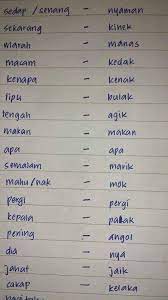 sedap / senang - nyaman
sekarang - kinek
marah - manas
macam - kedak
kenapa - kenak
tipu - bulak
tengah - agik
makan - makan
apa - apa
semalam - marik
mahu / nak - mok
pergi - pergi
kepala - palak
pening - angol
dia - nya
jahat - jaik
cakap - kelaka